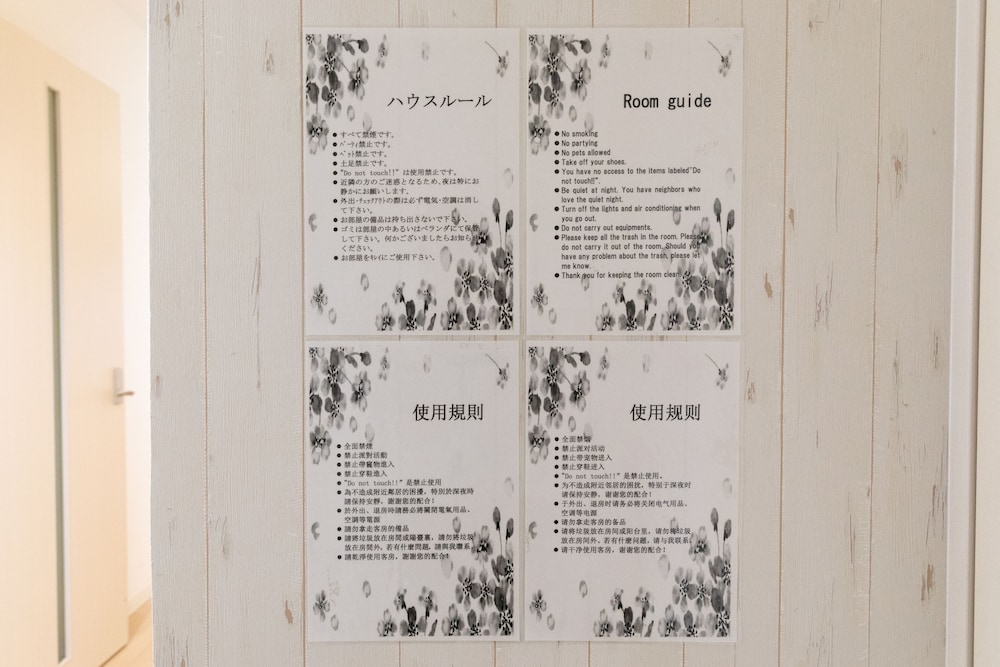 ハウスルール
● すべて禁煙です。
● パーティ禁止です。
● ペット禁止です。
● 土足禁止です。
● "Do not touch!!" は使用禁止です。
● 近隣の方のご迷惑となるため、夜は特にお
静かにお願いします。
● 外出・チェックアウトの際は必ず電気・空調は消し
て下さい。
● お部屋の備品は持ち出さないで下さい。
● ゴミは部屋の中あるいはベランダにて保管
して下さい。何かございましたらお知らせ
ください。
● お部屋をキレイにご使用下さい。
Room guide
● No smoking
● No partying
● No pets allowed
● Take off your shoes.
● You have no access to the items labeled"Do
not touch!!".
● Be quiet at night. You have neighbors who
love the quiet night.
● Turn off the lights and air conditioning when
you go out.
● Do not carry out equipments.
● Please keep all the trash in the room. Please
do not carry it out of the room. Should you
have any problem about the trash, please let
me know.
● Thank you for keeping the room clean.
使用規則
● 全面禁煙
● 禁止派對活動
● 禁止帶寵物進入
● 禁止穿鞋進入
● "Do not touch!!" 是禁止使用
● 為不造成附近鄰居的困擾，特別於深夜時
請保持安靜，謝謝您的配合！
● 於外出、退房時請務必將關閉電氣用品、
空調等電源
● 請勿拿走客房的備品
● 請將垃圾放在房間或陽臺裏，請勿將垃圾
放在房間外，若有什麼問題，請與我聯系。
● 請乾淨使用客房，謝謝您的配合！
使用规则
● 全面禁烟
● 禁止派对活动
● 禁止带宠物进入
● 禁止穿鞋进入
● "Do not touch!!" 是禁止使用。
● 为不造成附近邻居的困扰，特别于深夜时
请保持安静，谢谢您的配合！
● 于外出、退房时请务必将关闭电气用品、
空调等电源
● 请勿拿走客房的备品
● 请将垃圾放在房间或阳台里，请勿将垃圾
放在房间外，若有什么问题，请与我联系。
● 请干净使用客房，谢谢您的配合！